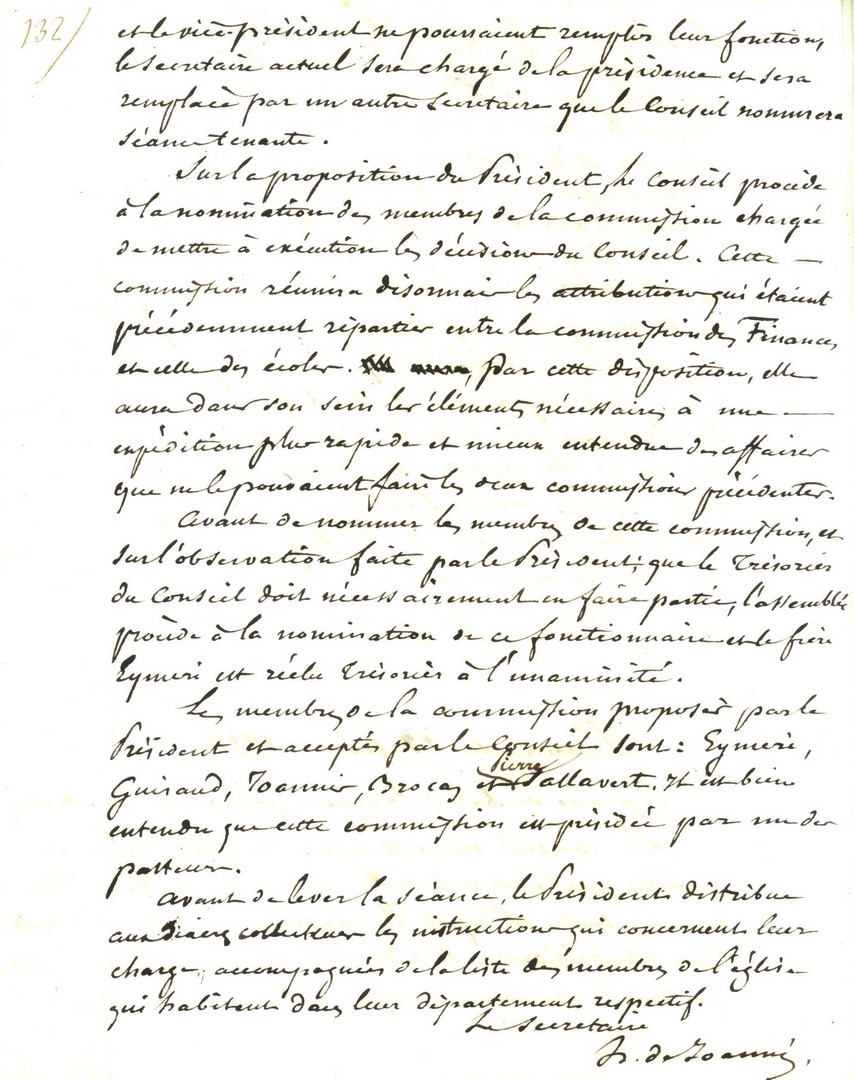 132/
et le vice-président ne pourraient remplir leur fonction,
le secrétaire actuel sera chargé de la présidence et sera
remplacé par un autre secrétaire que le Conseil nommera
séance tenante.
Sur la proposition du Président, le Conseil procède
à la nomination des membres de la commission chargée
de mettre à exécution les décisions du Conseil. Cette —
commission réunira désormais les attributions qui étaient
précédemment réparties entre la commission des Finances
et celle des écoles. par cette disposition, elle
aura dans son sein les éléments nécessaires à une —
expédition plus rapide et mieux entendue des affaires
que ne le pouvaient faire les deux commissions précédentes.
Avant de nommer les membres de cette commission, et
sur l'observation faite par le Président, que le Trésorier
du Conseil doit nécessairement en faire partie, l'assemblée
procède à la nomination de ce fonctionnaire et le frère
Eymeri est réélu Trésorier à l'unanimité.
Les membres de la commission proposés par le
Président et acceptés par le Conseil sont : Eymeri,
Pierre
Guiraud, Joannis, Brocas et Pallavert. Il est bien
entendu que cette commission est présidée par un des
pasteurs.
Avant de lever la séance, le Président distribue
aux diacres collecteurs les instructions qui concernent leur
charge, accompagnées de la liste des membres de l'église
qui habitent dans leur département respectif.
Le Secrétaire
de Joannis.